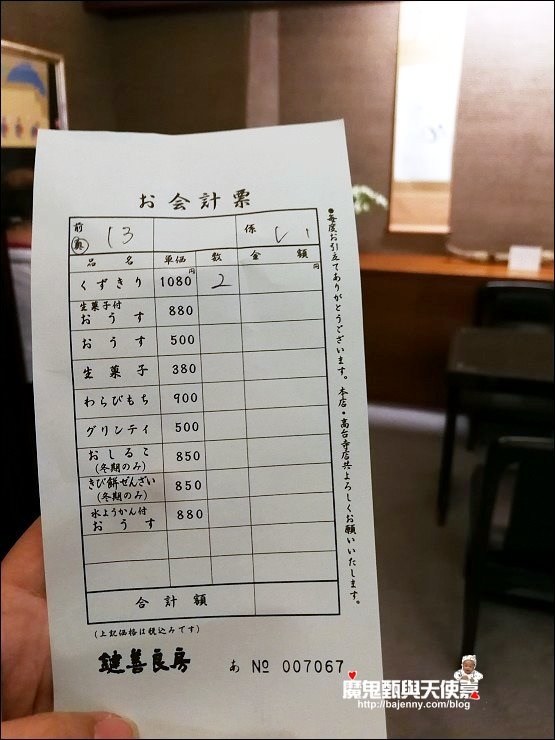 お会計票
前 奥 13 係 い
品名 単価 数 金額
くずきり 1080円 2 円
生菓子付
おうす 880
おうす 500
生菓子 380
わらびもち 900
グリンティ 500
おしるこ
(冬期のみ) 850
きび餅ぜんざい
(冬期のみ) 850
水ようかん付
おうす 880
合計額
(上記価格は税込みです)
鍵善良房 あ No 007067
●毎度お引立てありがとうございます。本店・高台寺店共よろしくお願いいたします。
魔鬼甄與天使嘉
http://bajenny.com/blog